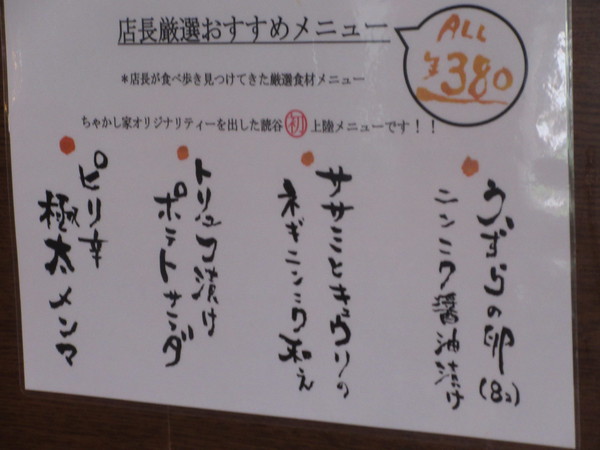 店長厳選おすすめメニュー
ALL
¥380
*店長が食べ歩き見つけてきた厳選食材メニュー
ちゃかし家オリジナリティーを出した読谷初上陸メニューです!!
うずらの卵(8コ)
ニンニク醤油漬け
ササミときゅうりの
ネギニンニク和え
トリュフ漬け
ポテトサラダ
ピリ辛
極太メンマ